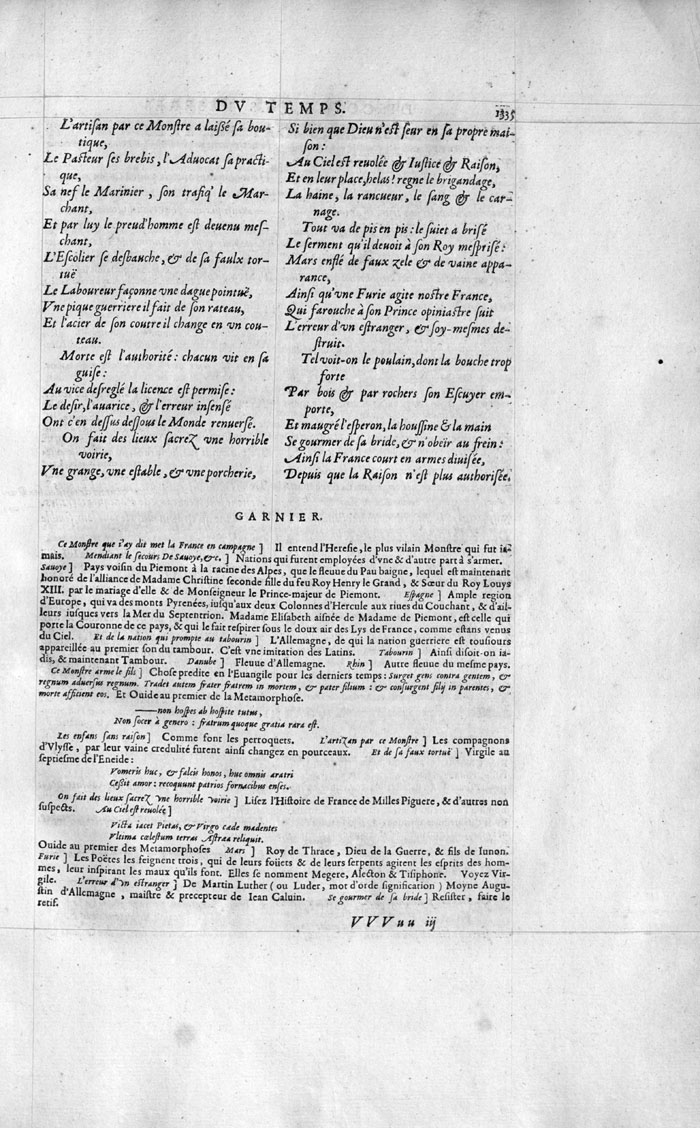 DV TEMPS.
1335
L'artisan par ce Monstre a laißé sa bou-
tique,
Le Pasteur ses brebis, l'Aduocat sa practi-
que,
Sa nef le Marinier, son trafiq' le Mar-
chant,
Et par luy le preud'homme est deuenu mes-
chant,
L'Escolier se desbauche, & de sa faulx tor-
tuë
Le Laboureur façonne vne dague pointuë,
Vne pique guerriere il fait de son rateau,
Et l'acier de son coutre il change en vn cou-
teau.
Morte est l'authorité: chacun vit en sa
guise:
Au vice desreglé la licence est permise:
Le desir, l'auarice, & l'erreur insensé
Ont c'en dessus dessous le Monde renuersé.
On fait des lieux sacrez vne horrible
voirie,
Vne grange, vne estable, & vne porcherie,
Si bien que Dieu n'est seur en sa propre mai-
son:
Au Ciel est reuolée & Iustice & Raison,
Et en leur place, helas! regne le brigandage,
La haine, la rancueur, le sang & le car-
nage.
Tout va de pis en pis: le suiet a brisé
Le serment qu'il deuoit à son Roy mesprisé:
Mars enflé de faux zele & de vaine appa-
rance,
Ainsi qu'vne Furie agite nostre France,
Qui farouche à son Prince opiniastre suit
L'erreur d'vn estranger, & soy-mesmes de-
struit.
Tel voit-on le poulain, dont la bouche trop
forte
Par bois & par rochers son Escuyer em-
porte,
Et maugré l'esperon, la houssine & la main
Se gourmer de sa bride, & n'obeïr au frein:
Ainsi la France court en armes diuisée,
Depuis que la Raison n'est plus authorisée.
GARNIER.
Ce Monstre que i'ay dit met la France en campagne] Il entend l'Heresie, le plus vilain Monstre qui fut ia-
mais. Mendiant le secours De Sauoye, &c.] Nations qui furent employées d'vne & d'autre part à s'armer.
Sauoye] Pays voisin du Piemont à la racine des Alpes, que le fleuue du Pau baigne, lequel est maintenant
honoré de l'alliance de Madame Christine seconde fille du feu Roy Henry le Grand, & Sœur du Roy Louys
XIII. par le mariage d'elle & de Monseigneur le Prince-majeur de Piemont. Espagne] Ample region
d'Europe, qui va des monts Pyrenées, iusqu'aux deux Colonnes d'Hercule aux riues du Couchant, & d'ail-
leurs iusques vers la Mer du Septentrion. Madame Elisabeth aisnée de Madame de Piemont, est celle qui
porte la Couronne de ce pays, & qui le fait respirer sous le doux air des Lys de France, comme estans venus
du Ciel. Et de la nation qui prompte au tabourin] L'Allemagne, de qui la nation guerriere est tousiours
appareillée au premier son du tambour. C'est vne imitation des Latins. Tabourin] Ainsi disoit-on ia-
dis, & maintenant Tambour. Danube] Fleuue d'Allemagne. Rhin] Autre fleuue du mesme pays.
Ce Monstre arme le fils] Chose predite en l'Euangile pour les derniers temps: Surget gens contra gentem, &
regnum aduersus regnum. Tradet autem frater fratrem in mortem, & pater filium: & consurgent filij in parentes, &
morte afficient eos. Et Ouide au premier de la Metamorphose.
——non hospes ab hospite tutus,
Non socer à genero: fratrum quoque gratia rara est.
Les enfans sans raison] Comme font les perroquets. L'artizan par ce Monstre] Les compagnons
d'Vlysse, par leur vaine credulité furent ainsi changez en pourceaux. Et de sa faux tortuë] Virgile au
septiesme de l'Eneide:
Vomeris huc, & falcis honos, huc omnis aratri
Cessit amor: recoquunt patrios fornacibus enses.
On fait des lieux sacrez vne horrible voirie] Lisez l'Histoire de France de Milles Piguerre, & d'autres non
suspects. Au Ciel est reuolée]
Victa iacet Pietas, & Virgo cæde madentes
Vltima cælestum terras Astræa reliquit.
Ouide au premier des Metamorphoses Mars] Roy de Thrace, Dieu de la Guerre, & fils de Iunon.
Furie] Les Poëtes les feignent trois, qui de leurs foüets & de leurs serpents agitent les esprits des hom-
mes, leur inspirant les maux qu'ils font. Elles se nomment Megere, Alecton & Tisiphone. Voyez Vir-
gile. L'erreur d'vn estranger] De Martin Luther (ou Luder, mot d'orde signification) Moyne Augu-
stin d'Allemagne, maistre & precepteur de Iean Caluin. Se gourmer de sa bride] Resister, faire le
retif.
VVVuu iij